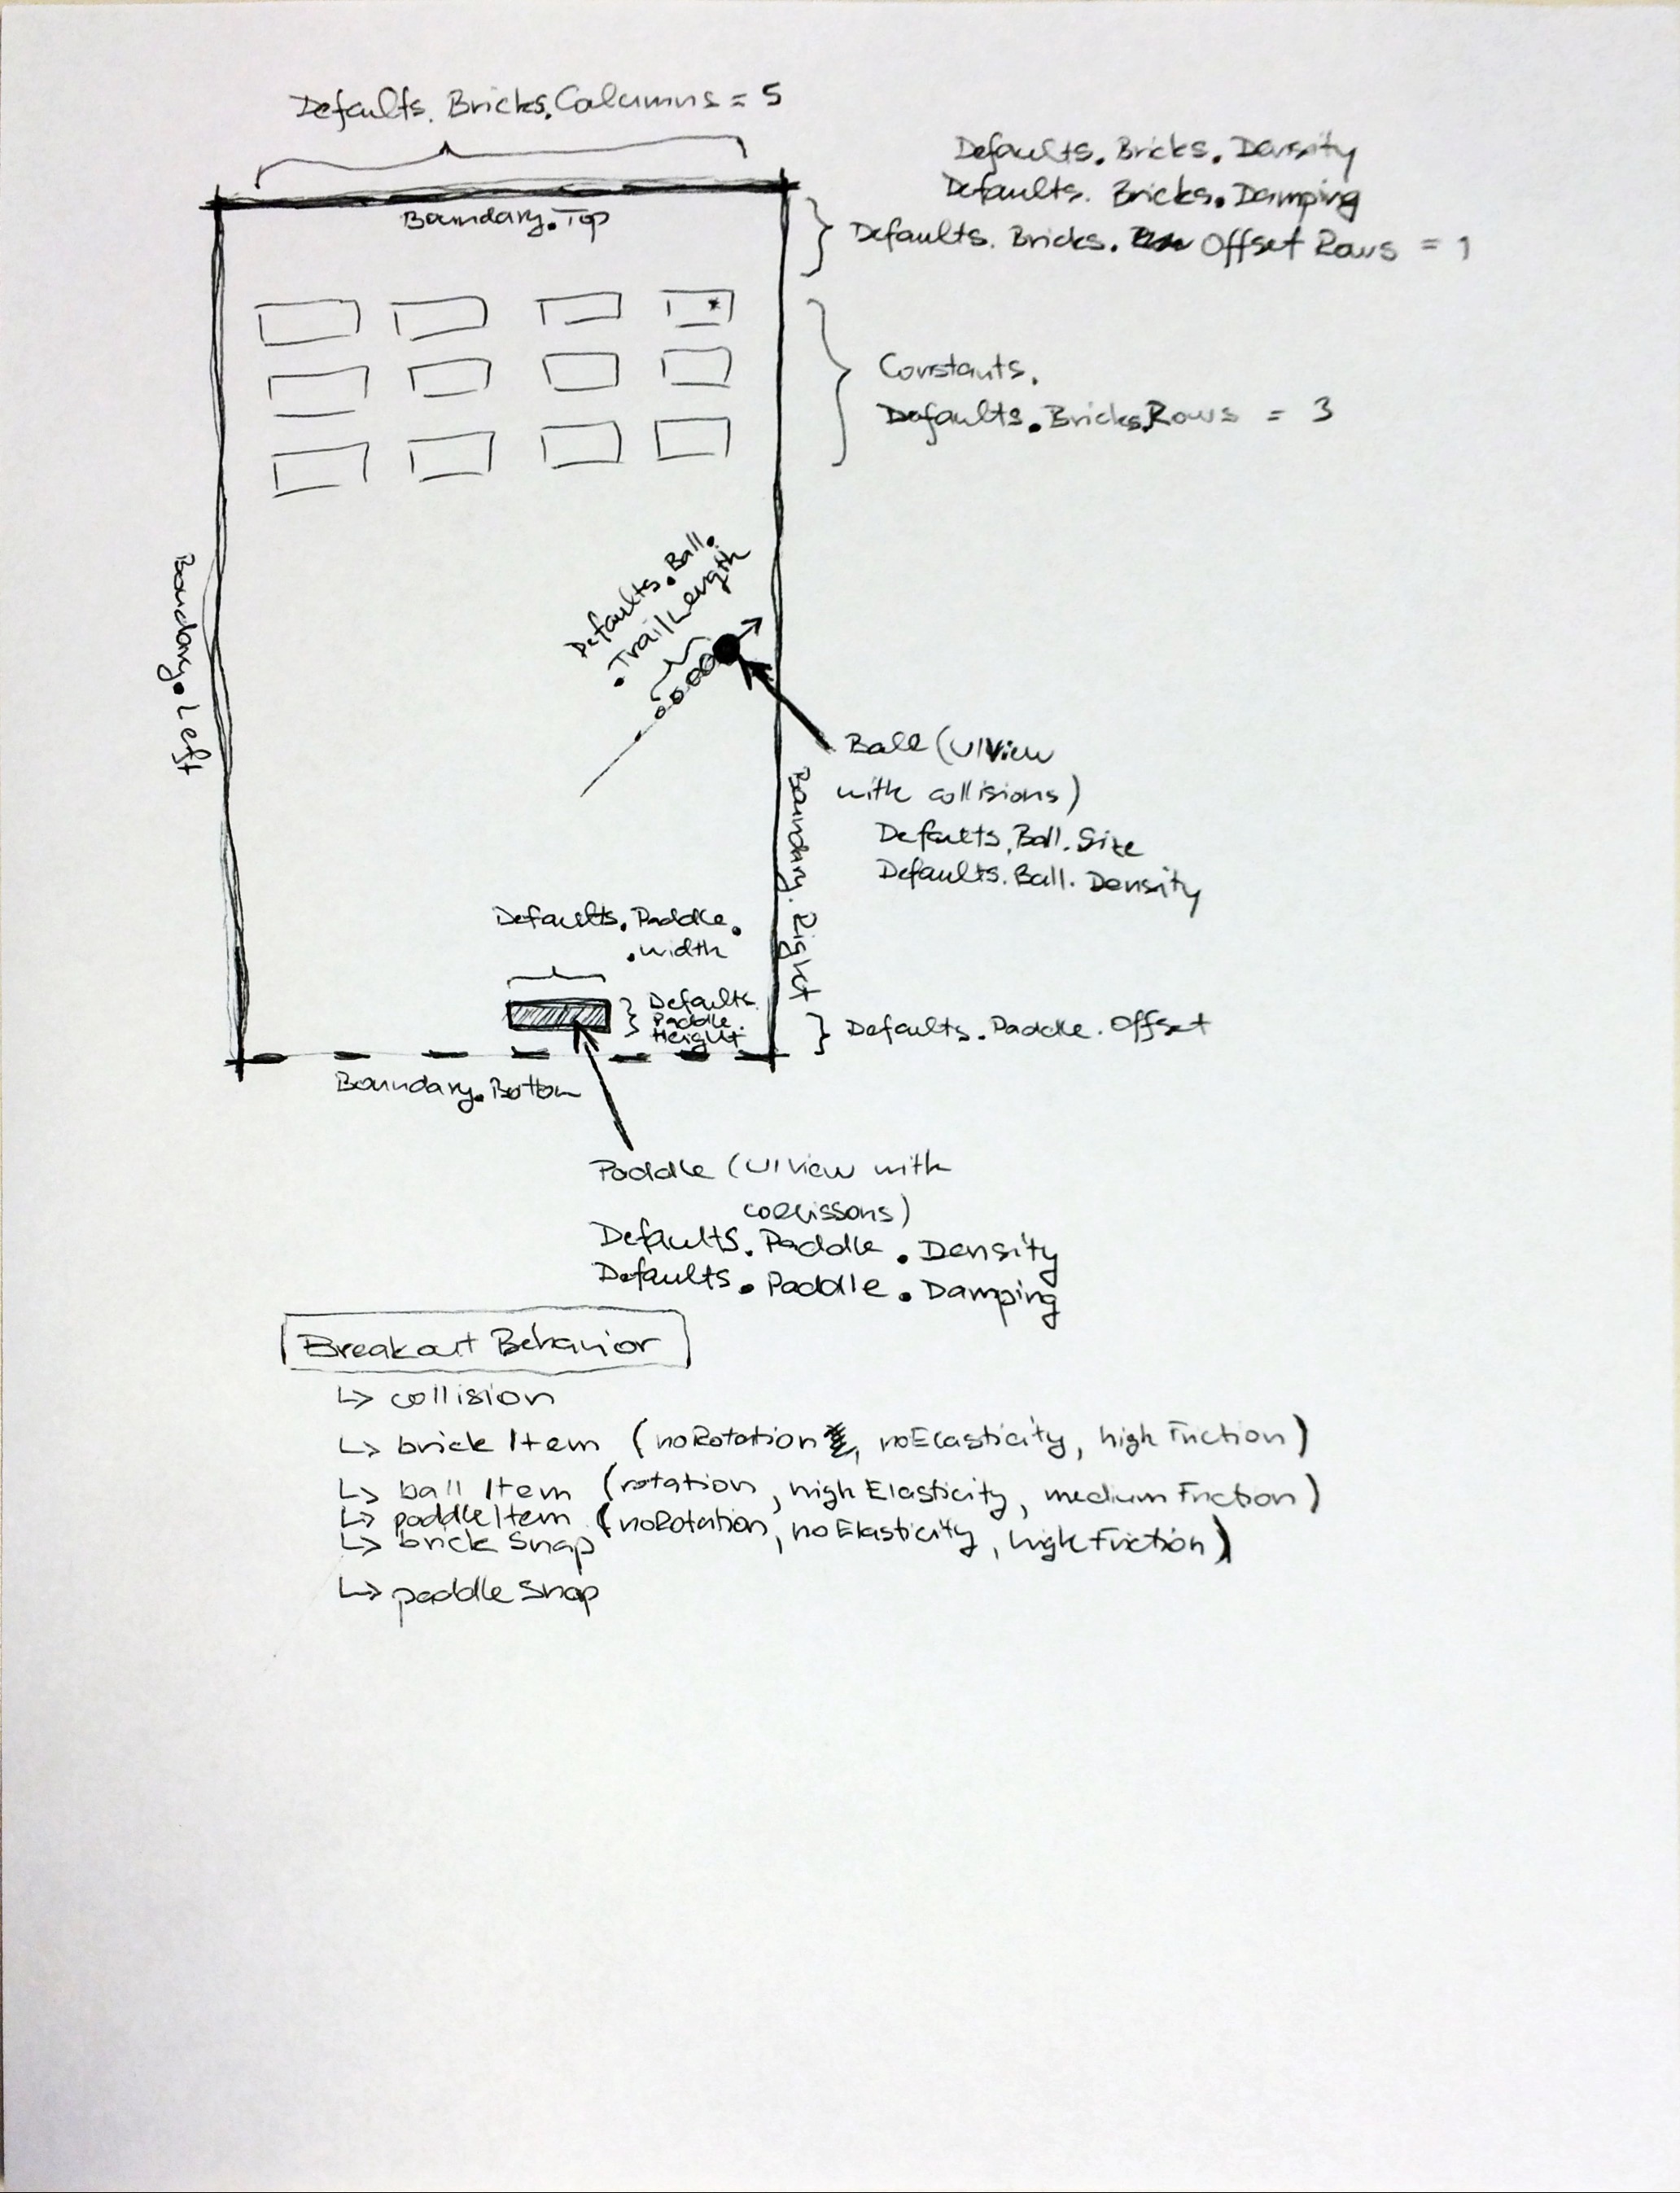 Defaults.Bricks.Columns = 5
Defaults.Bricks.Density
Defaults.Bricks.Damping
Boundary.Top
Defaults.Bricks. Offset Rows = 1
Constants.
Defaults.Bricks.Rows = 3
Defaults.Ball.
.TrailLength
Boundary.Left
Ball (UIView
with collisions)
Defaults.Ball.Size
Defaults.Ball.Density
Boundary.Right
Defaults.Paddle.
.width
Defaults.
Paddle.
Height
Defaults.Paddle.Offset
Boundary.Bottom
Paddle (UIView with
collissons)
Defaults.Paddle.Density
Defaults.Paddle.Damping
Breakout Behavior
↳ collision
↳ brick Item (noRotation, noElasticity, high Friction)
↳ ball Item (rotation, high Elasticity, medium Friction)
↳ paddle Item (noRotation, no Elasticity, high Friction)
↳ brick Snap
↳ paddle Snap